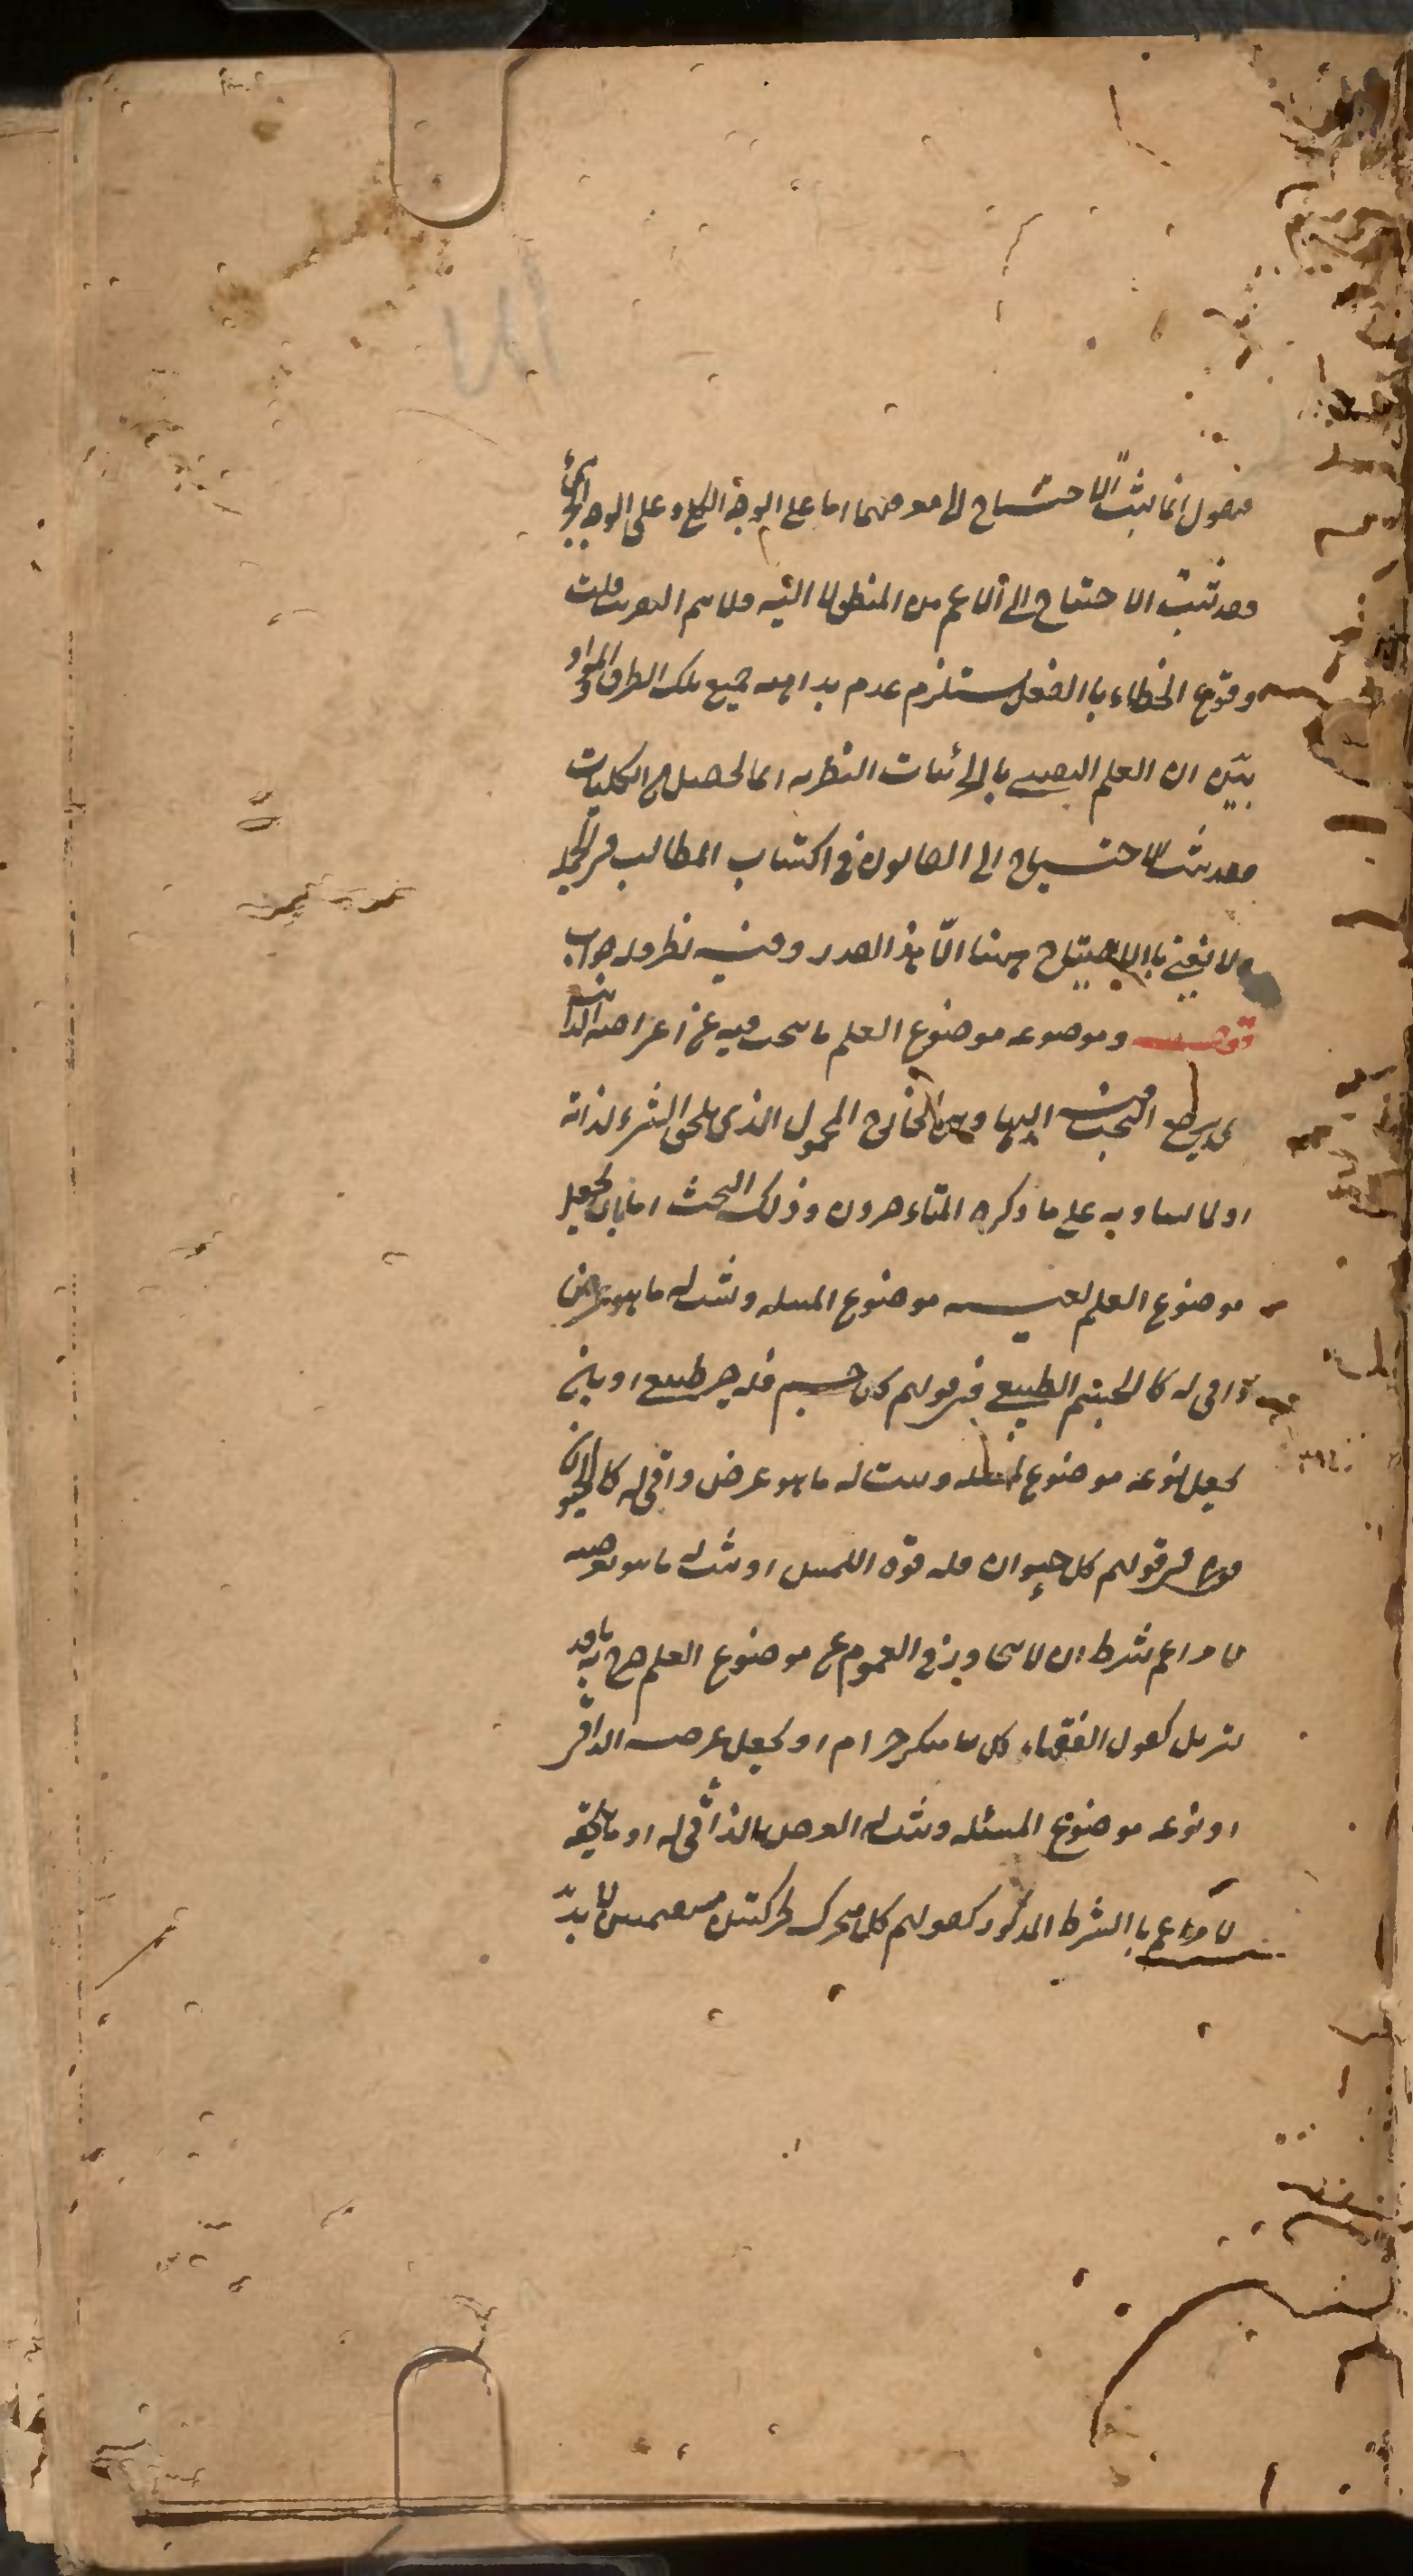 فنقول انما يثبت الاحتياج الى معرفتهما اما على الوجه الكلي او على الوجه الجزئي
فقد ثبت الاحتياج الى الاعم من المنطق لا اليه فلا يتم التقريب قلت
وقوع الخطاء بالفعل يستلزم عدم بداهة جميع تلك الطرق والمواد
بين ان العلم اليقيني بالجزئيات النظرية انما يحصل من الكليات
فقد ثبت الاحتياج الى القانون في اكتساب المطالب في الجملة
ولا نعني بالاحتياج ههنا الا هذا القدر وفيه نظر وله جواب
قوله وموضوعه موضوع العلم ما يبحث فيه عن اعراضه الذاتية
اى يرجع البحث فيه اليها وهى الخارج المحمول الذى يلحق الشىء لذاته
او لما يساويه على ما ذكره المتاخرون وذلك البحث اما بان يجعل
موضوع العلم بعينه موضوع المسئلة ويثبت له ما هو عرض
ذاتى له كالجسم الطبيعي في قولهم كل جسم فله حيز طبيعي او بان
يجعل نوعه موضوع المسئلة ويثبت له ما هو عرض ذاتى له كالحيوان
في قولهم كل حيوان فله قوة اللمس او يثبت له ما هو يعرضه
لامر اعم بشرط ان لا يتجاوز في العموم عن موضوع العلم صرح به ناقد
التنزيل كقول الفقهاء كل مسكر حرام او يجعل عرضه الذاتي
او نوعه موضوع المسئلة ويثبت له العرض الذاتى له او ما يلحقه
لامر اعم بالشرط المذكور كقولهم كل متحرك بحركتين مستقيمتين لا بد